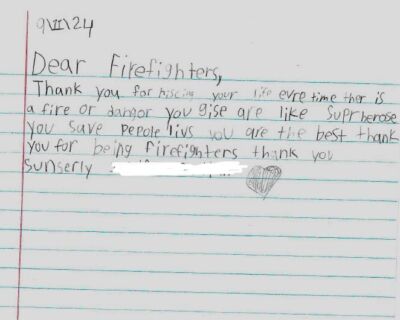 9\11\24
Dear Firefighters,
Thank you for riscing your life evre time ther is
a fire or dangor you gise are like Suprherose
you save peeole livs you are the best thank
you for being firefighters thank you
Sunserly